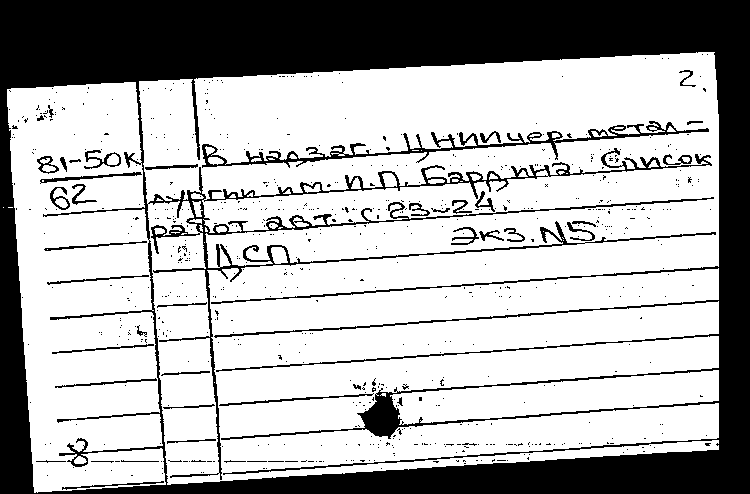 2.
81-50К В надзаг.: ЦНИИчер. метал-
62 лургии им. И.П. Бардина. Список
работ авт.: с. 23-24.
Экз. N5.
ДСП.
8